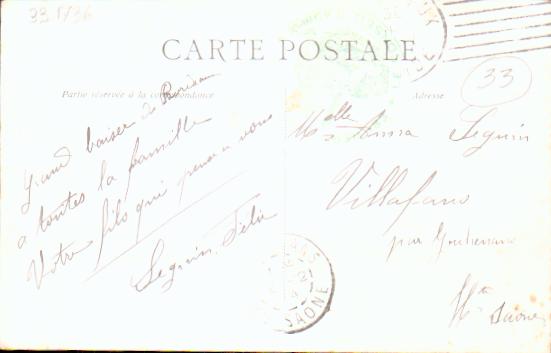 33 1736
CARTE POSTALE
Partie réservée à la correspondance
Adresse
33
Grand baiser de Bordeaux
a toutes la famille
Votre fils qui pense a vous
Seguin Felix
Melle Anna Seguin
Villafans
par
Hte Saone
SAONE